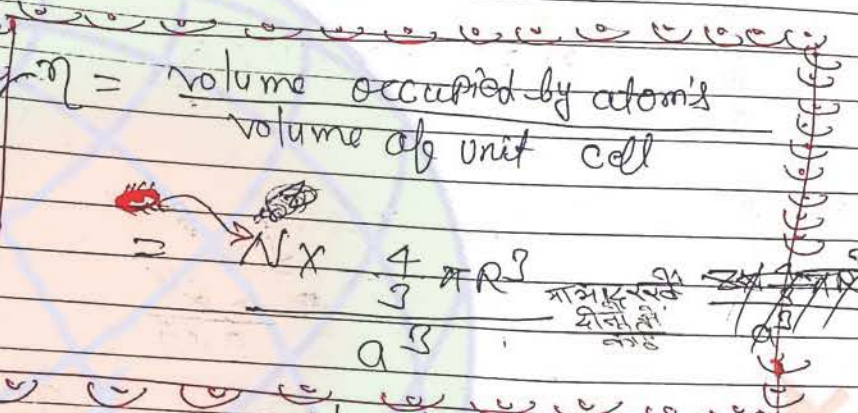 η = volume occupied by atom's
volume of unit cell
= N × 4/3 πR³
a³